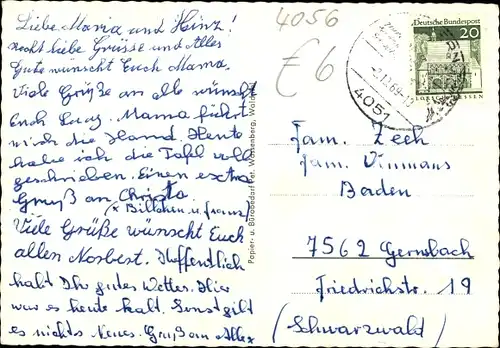 Liebe Maria und Heinz!
recht liebe Grüsse und Alles
Gute wünscht Euch Mama.
Viele Grüße an alle wünscht
Euch Mama führt
mich die Hand. Heute
habe ich die Tafel voll
geschrieben. Einen extra
Gruß an Christa
(x Billchen u. franz)
Viele Grüße wünscht Euch
allen Norbert. Hoffentlich
habt Ihr gutes Wetter. Hier
war es heute kalt. Sonst gibt
es nichts Neues. Gruß an Alle x
4056
€ 6
Papier- u. Bürobedarf
Deutsche Bundespost
20
4051
Fam. Zech
Fam.
Baden
7562 Gernsbach
Friedrichstr. 19
(Schwarzwald)